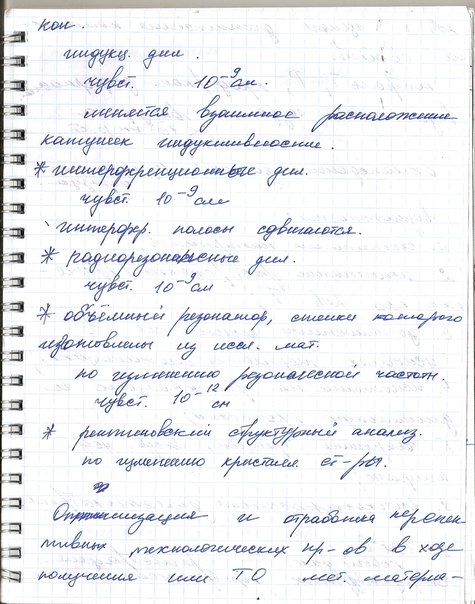 кон.
индукц. дил.
чувст. 10⁻⁹ см.
меняется взаимное расположение
катушек индуктивности.
* интерференционные дил.
чувст. 10⁻⁹ см
интерфер. полосы сдвигаются.
* радиорезонансные дил.
чувст. 10⁻⁹ см
* объёмный резонатор, стенки которого
изготовлены из иссл. мат.
по изменению резонансной частоты.
чувст. 10⁻¹² см
* рентгеновский структурный анализ.
по изменению кристалл. ст-ры.
Оптимизация и отработка перспек
тивных технологических пр-ов в ходе
получения или ТО мет. материа-